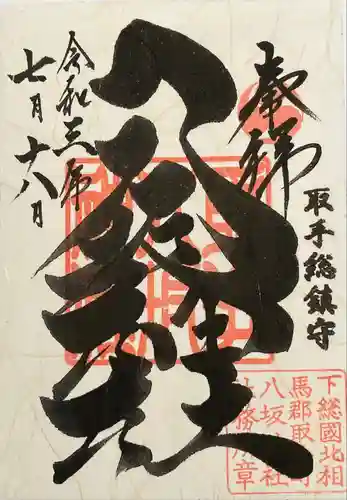 奉拝
取手総鎮守
八坂神社
令和三年
七月十八日
下総國北相
馬郡取手町
八坂神社
社務所章